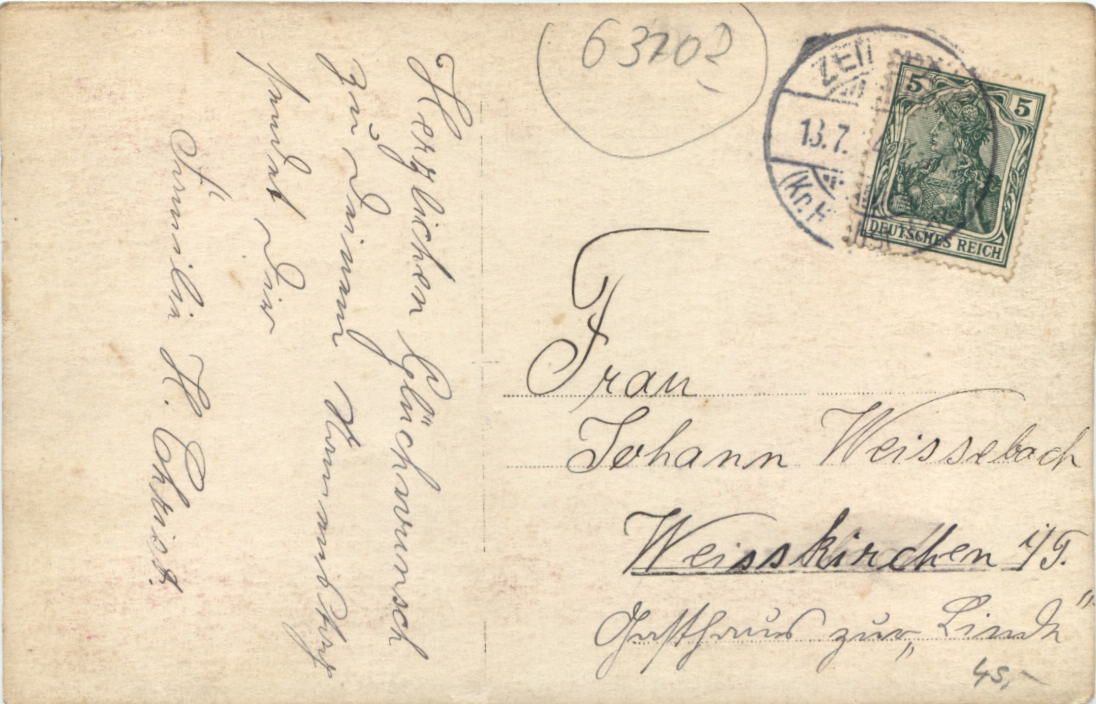 Herzlichen Glückwunsch
zu Deinem Namenstag
sendet Dir
Familie H. Christ.
63202
ZEIL
13.7.
(Kr. H
5 5
DEUTSCHES REICH
Frau
Johann Weissebach
Weisskirchen i/T.
Gasthaus zur „Linde“
45,-